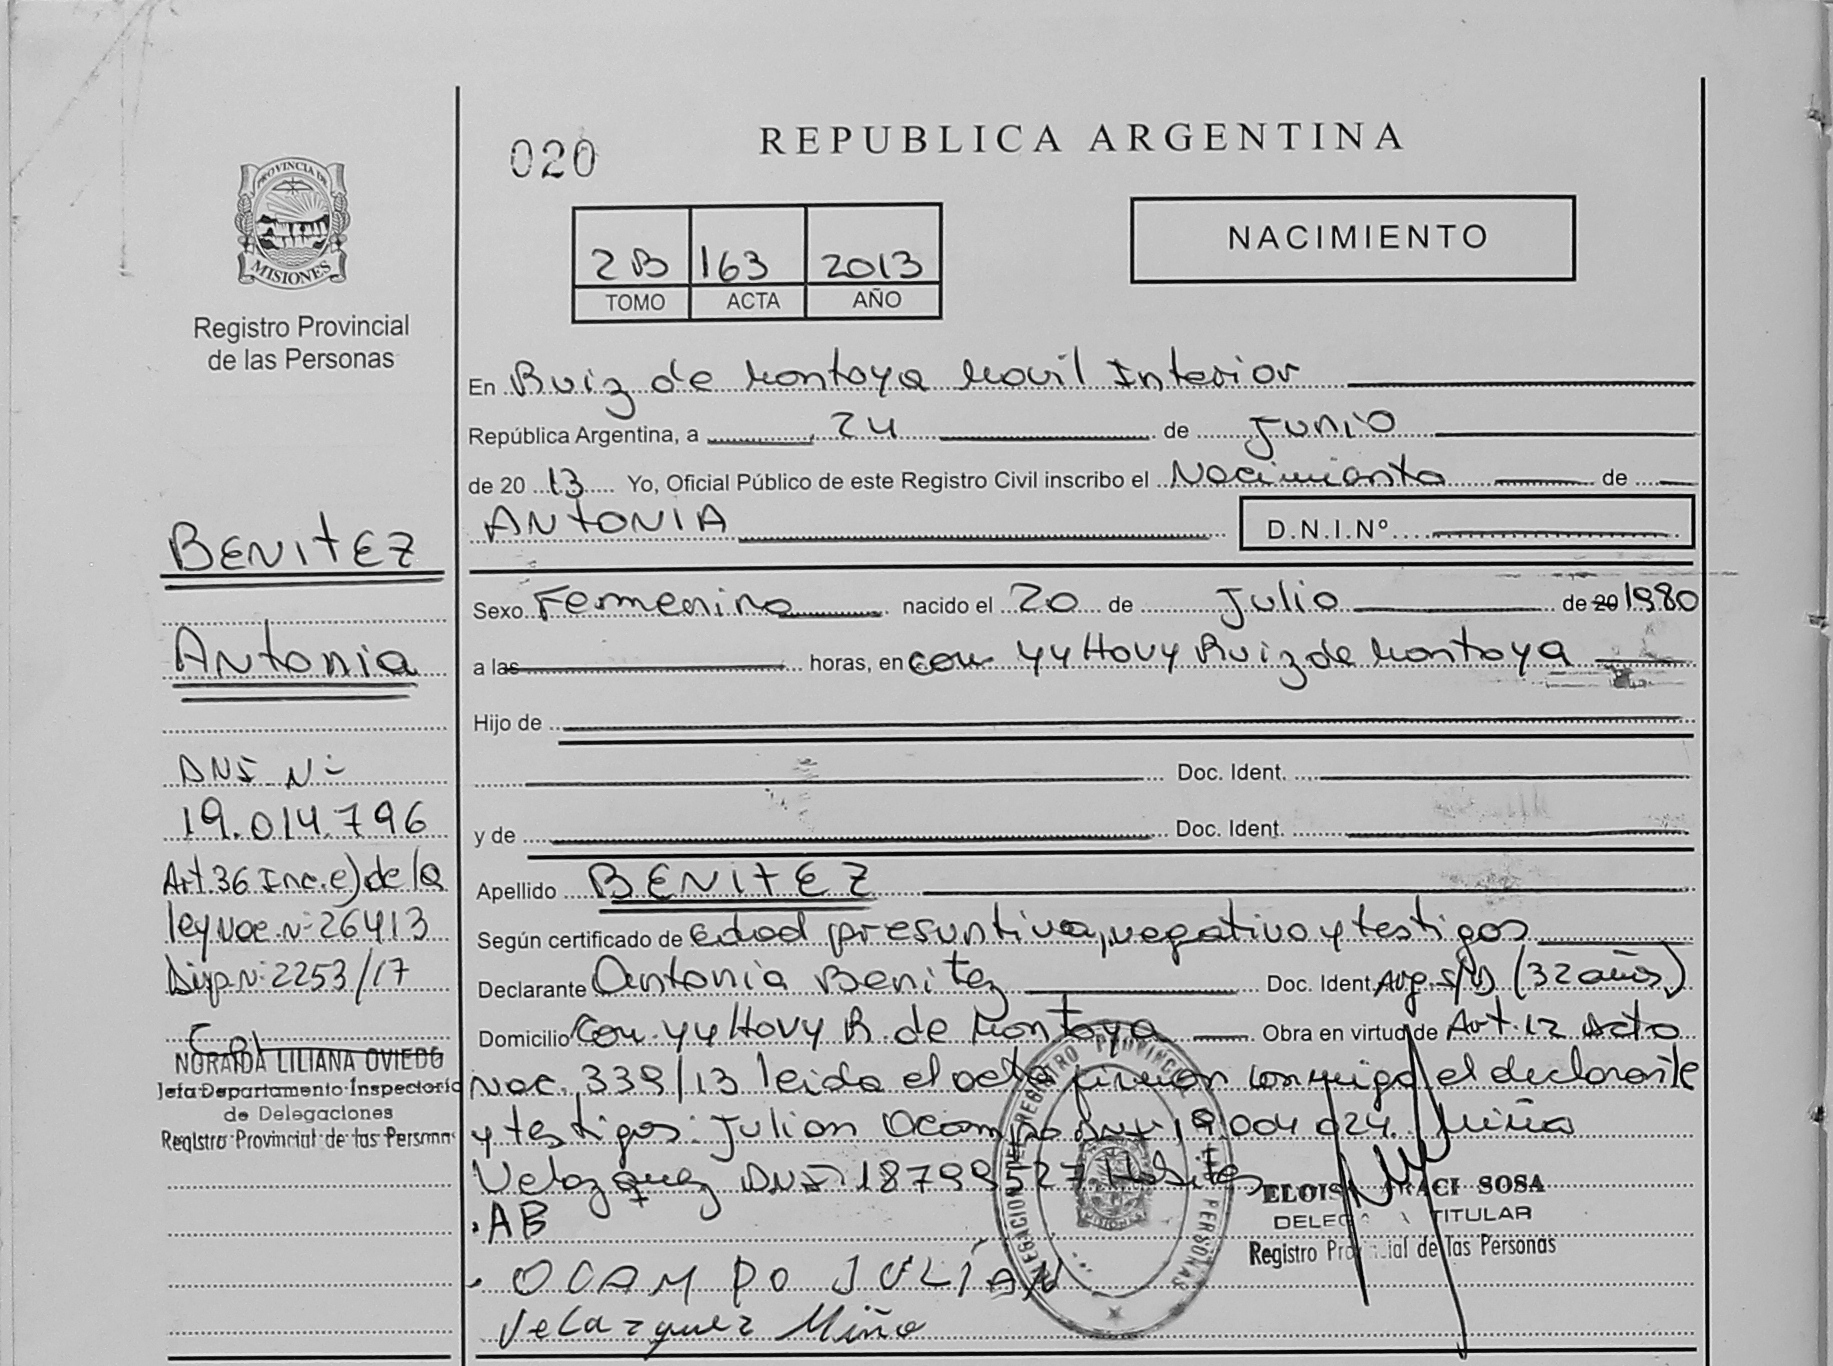 020
REPUBLICA ARGENTINA
PROVINCIA DE
MISIONES
Registro Provincial
de las Personas
2B 163 2013
TOMO ACTA AÑO
NACIMIENTO
En Ruiz de Montoya Movil Interior
República Argentina, a 24 de Junio
de 20 13 Yo, Oficial Público de este Registro Civil inscribo el Nacimiento de
ANTONIA D.N.I.Nº
Sexo Femenino nacido el 20 de Julio de 20 1980
a las horas, en Com. Yy Hovy Ruiz de Montoya
Hijo de
Doc. Ident.
y de Doc. Ident.
Apellido BENITEZ
Según certificado de edad presuntiva, negativo y testigos
Declarante Antonia Benitez Doc. Ident. Arg. S/D (32 años)
Domicilio Com. Yy Hovy R. de Montoya Obra en virtud de Art. 12 Dcto
Nac. 339/13 leida el acta firman conmigo el declarante
y testigos: Julian Ocampo DNI 19.004.024. Miño
Velazquez DNI 18799527
.AB
. OCAMPO JULÍAN
Velazquez Miño
ELOISA ARACI SOSA
DELEGADA TITULAR
Registro Provincial de las Personas
BENITEZ
Antonia
DNI Nº
19.014.796
Art. 36 Inc. e) de la
ley Nac. Nº 26413
Disp. Nº 2253/17
NORAIDA LILIANA OVIEDO
Jefa Departamento Inspectoría
de Delegaciones
Registro Provincial de las Personas